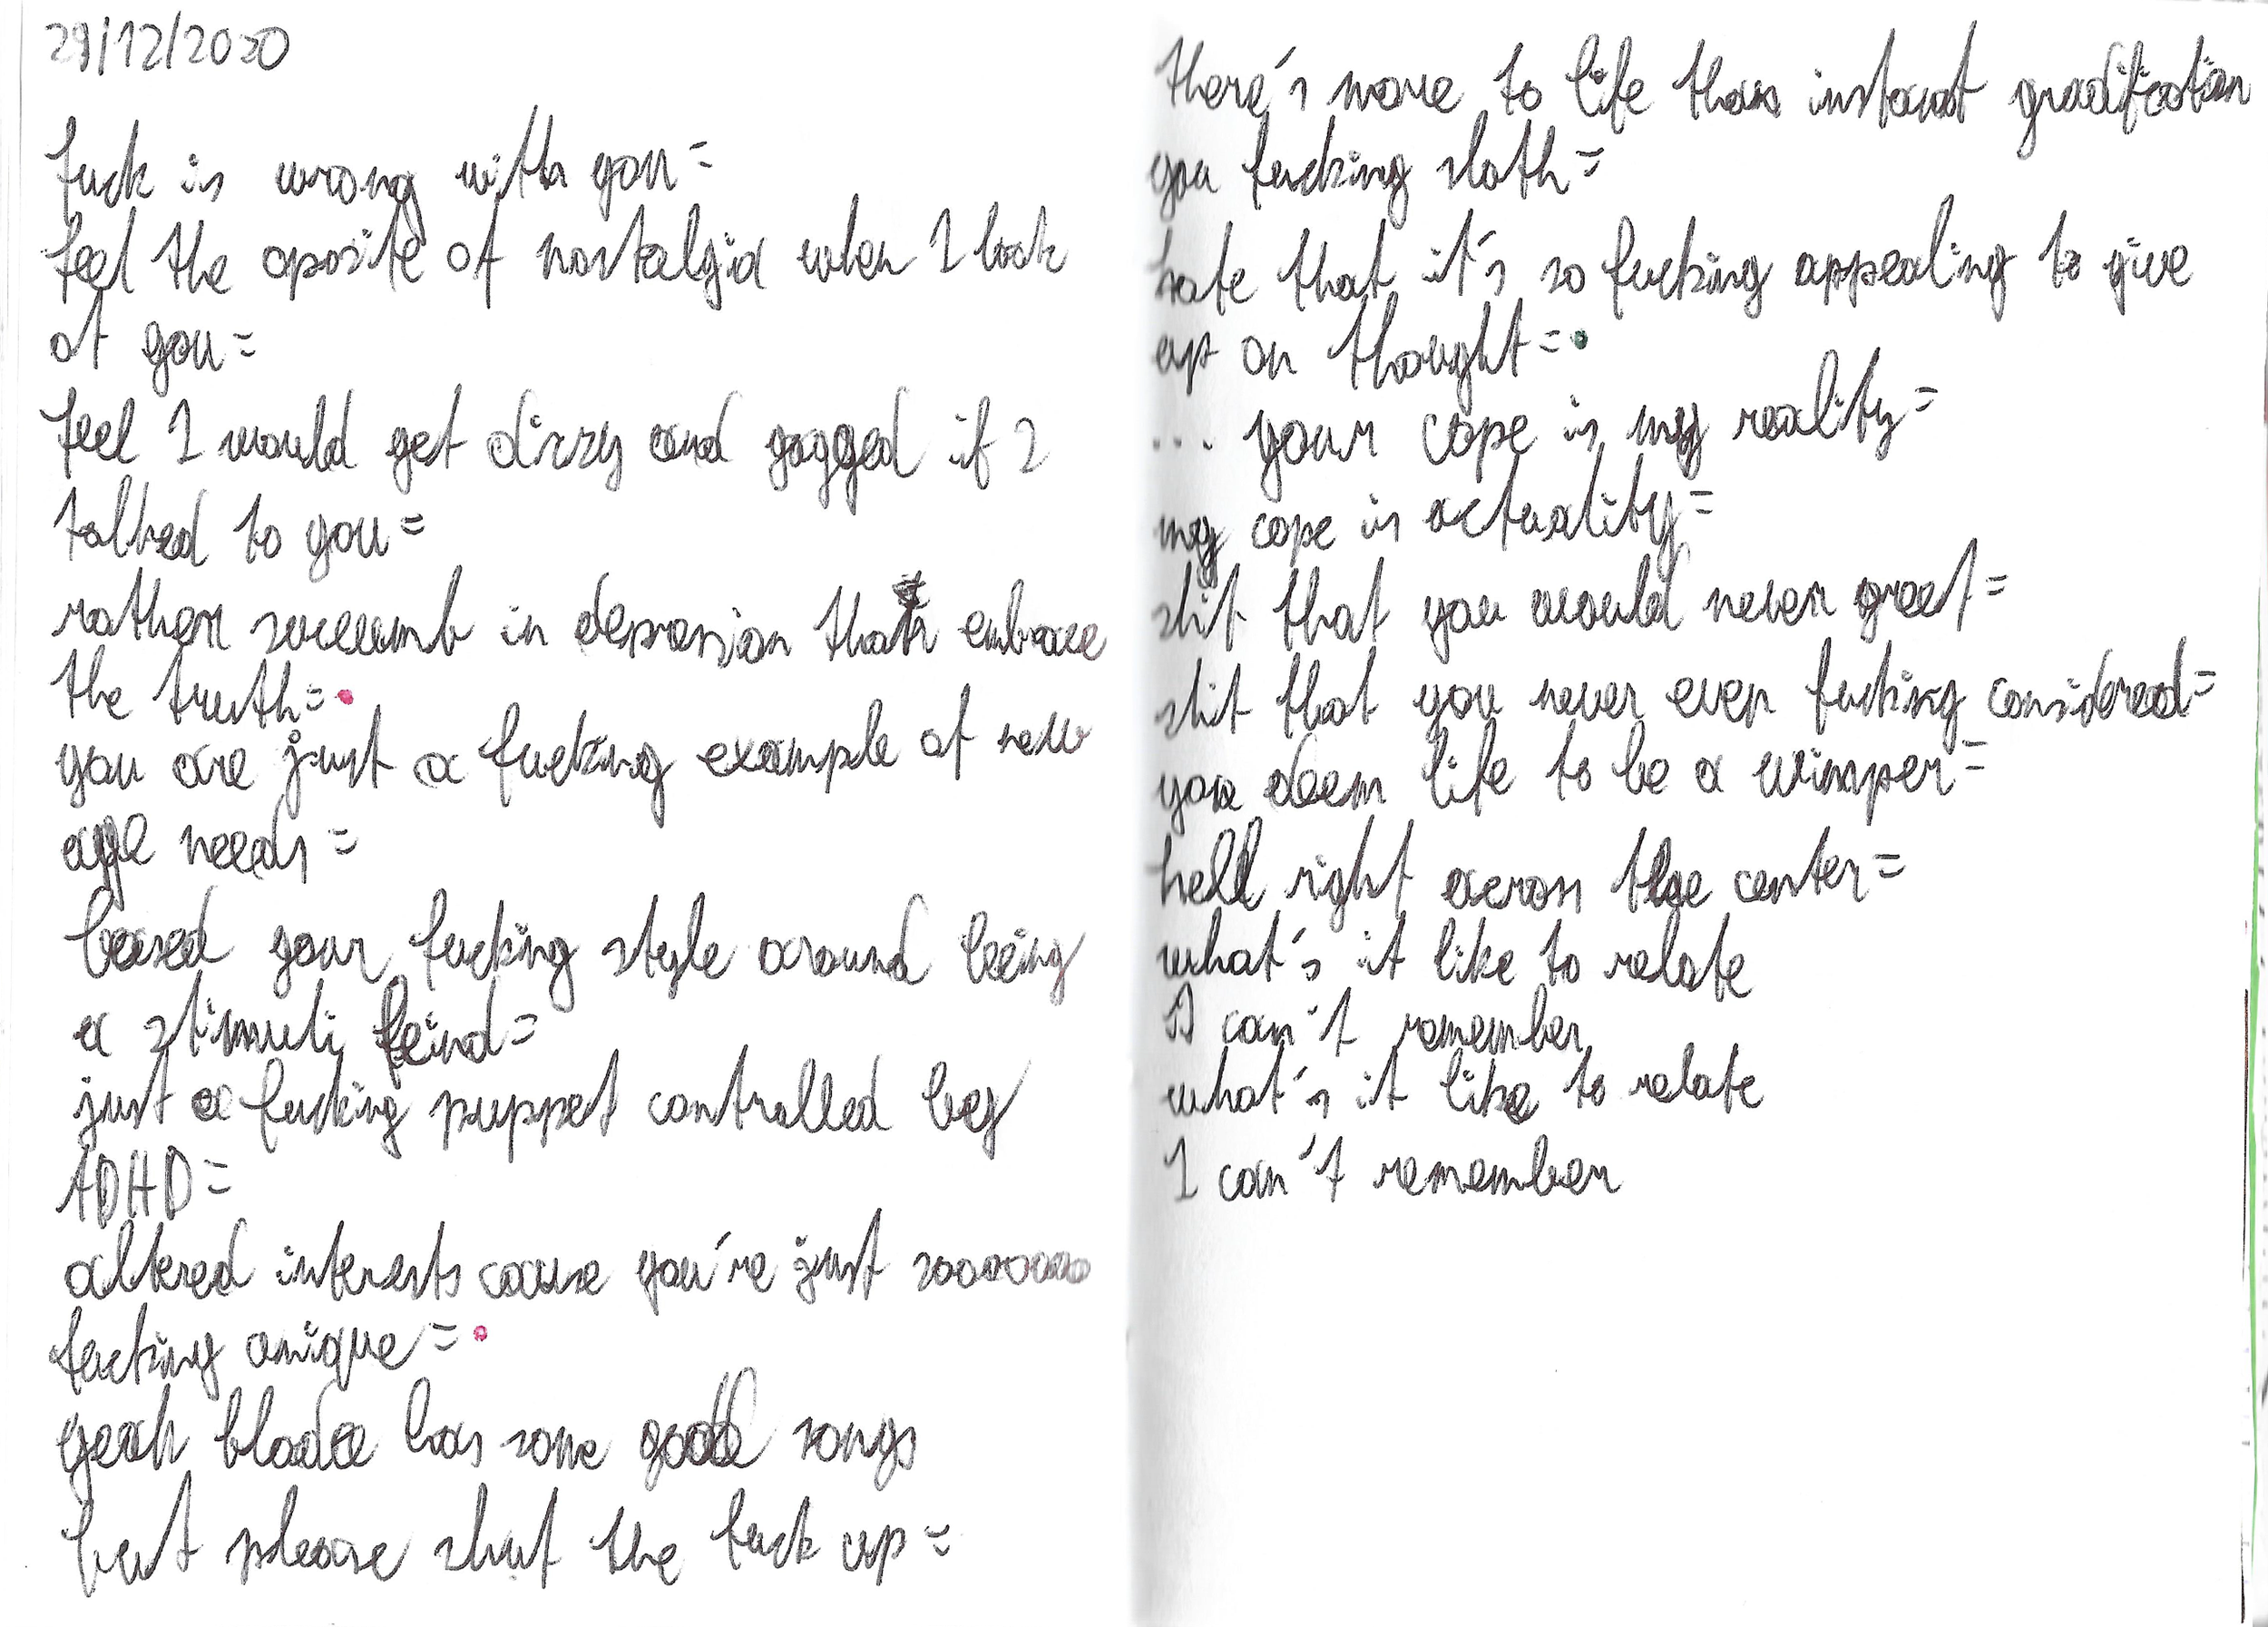 29/12/2020
fuck is wrong with you=
feel the oposite of nostalgia when I look
at you=
feel I would get dizzy and gagged if I
talked to you=
rather succumb in depression than embrace
the truth=
you are just a fucking example of new
age needs=
based your fucking style around being
a stimuli feind=
just a fucking puppet controlled by
ADHD=
altered interests cause you're just sooooooo
fucking unique=
yeah bladee has some good songs
but please shut the fuck up=
there's more to life than instant gradification
you fucking sloth=
hate that it's so fucking appealing to give
up on thought=
... your cope is my reality=
my cope is actuality=
shit that you would never greet=
shit that you never even fucking considered=
you deem life to be a wimper=
hell right across the center=
what's it like to relate
I can't remember
what's it like to relate
I can't remember